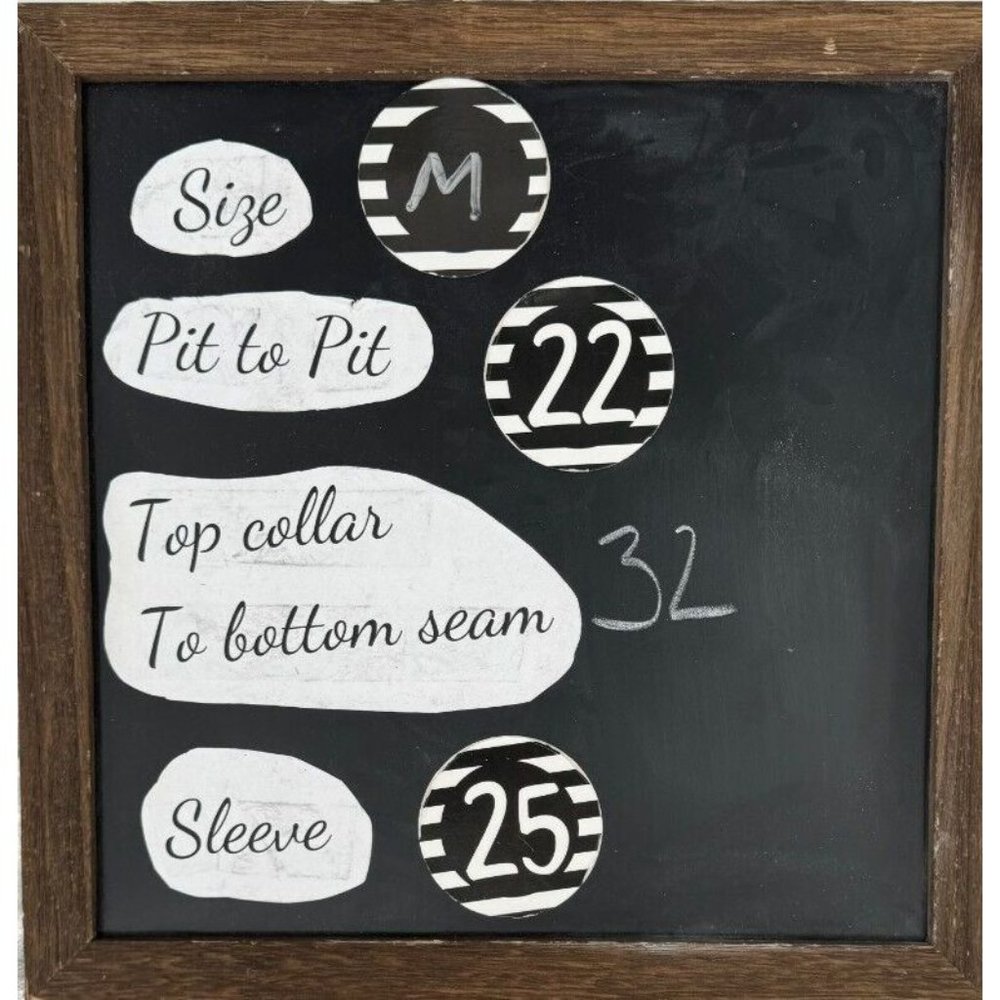 Size M
Pit to Pit 22
Top collar
To bottom seam 32
Sleeve 25